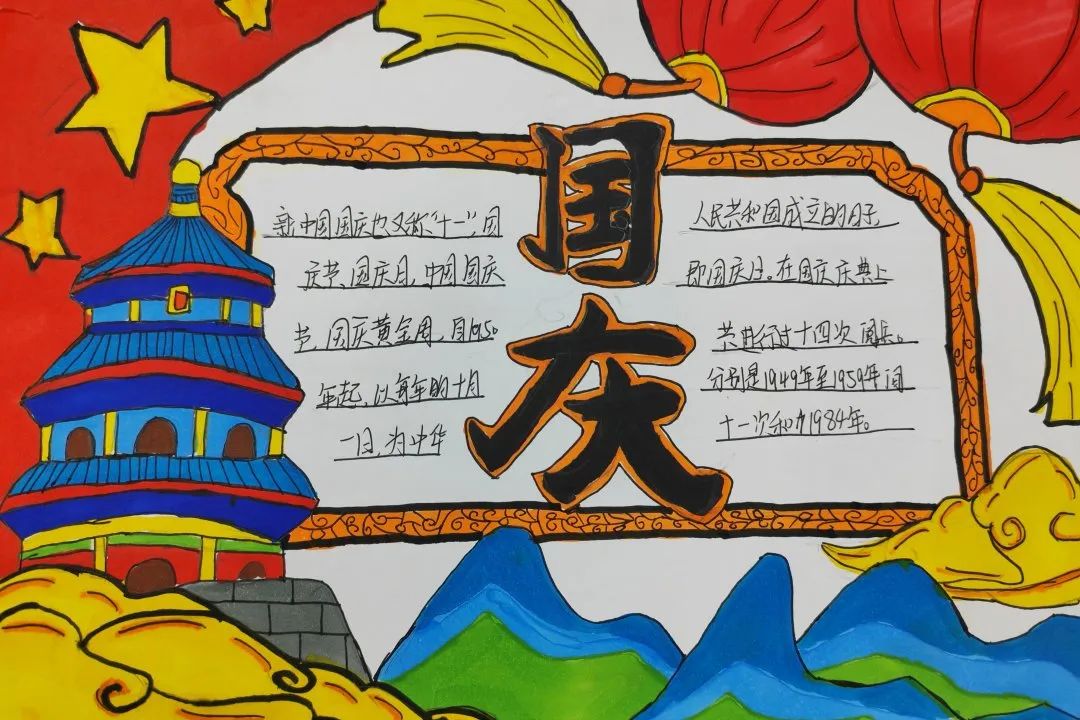 国庆
新中国国庆也又称“十一”,国
庆节、国庆日,中国国庆
节,国庆黄金周,自1950
年起,以每年的十月
一日,为中华
人民共和国成立的日子,
即国庆日。在国庆庆典上
共进行过十四次阅兵。
分别是1949年至1959年间
十一次和1984年。